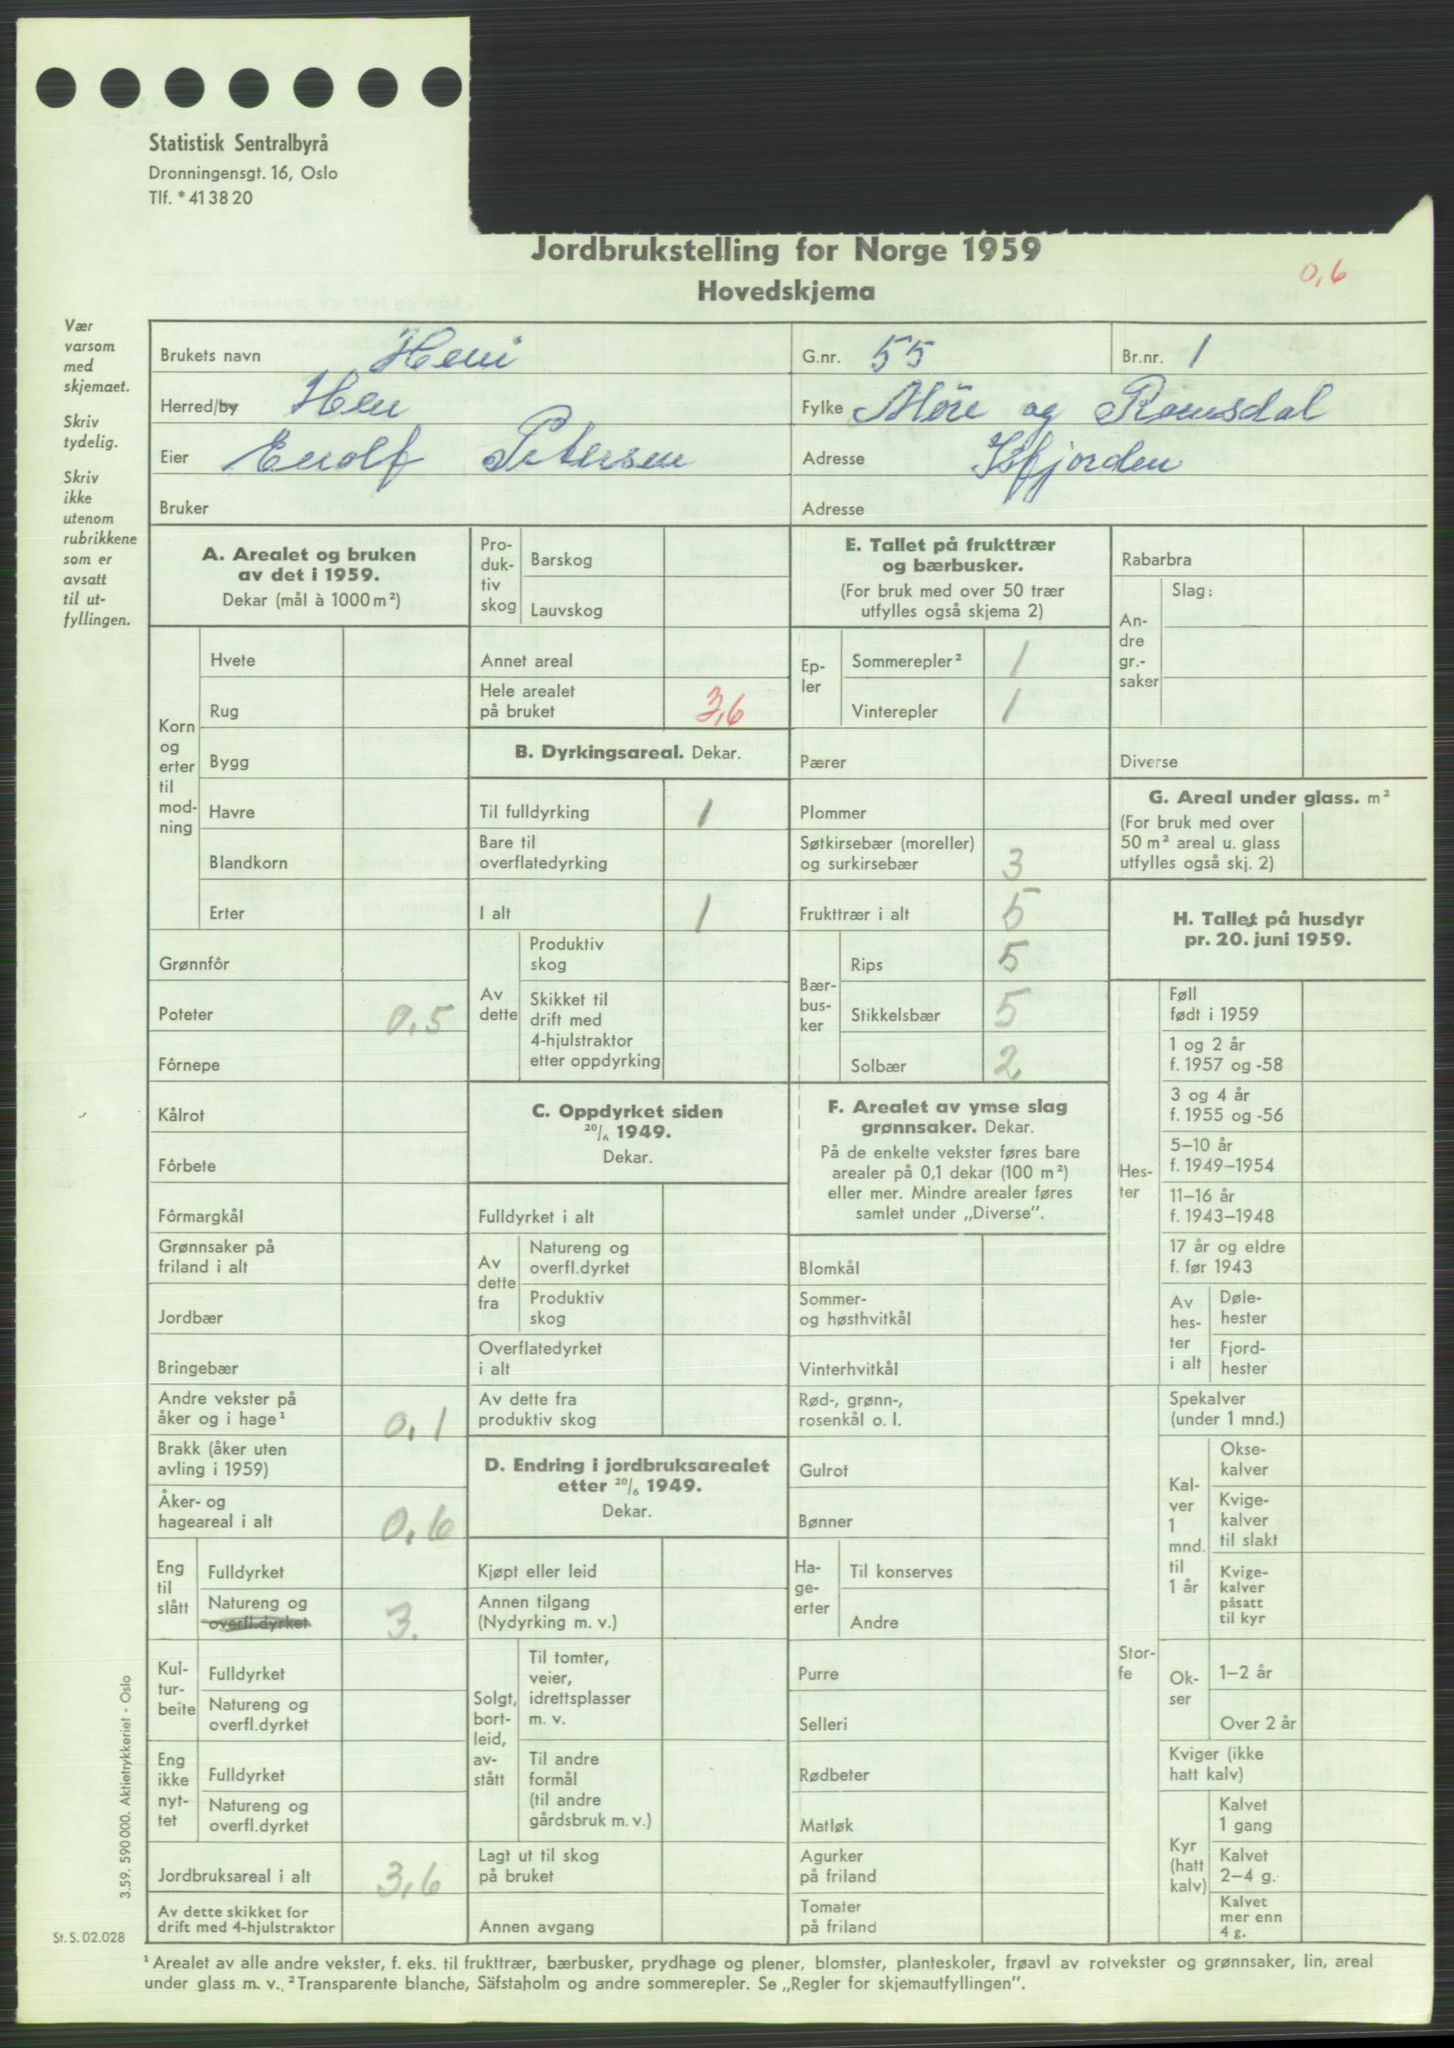 Statistisk Sentralbyrå
Dronningensgt. 16, Oslo
Tlf. *41 38 20
Jordbrukstelling for Norge 1959
Hovedskjema
0,6
Vær
varsom
med
skjemaet.
Skriv
tydelig.
Skriv
ikke
utenom
rubrikkene
som er
avsatt
til ut-
fyllingen.
Brukets navn G.nr. 55 Br.nr. 1
Herred/by Hen Fylke Möre og Romsdal
Eier Petersen Adresse Isfjorden
Bruker Adresse
A. Arealet og bruken
av det i 1959.
Dekar (mål à 1000 m²)
Korn
og
erter
til
mod-
ning
Hvete
Rug
Bygg
Havre
Blandkorn
Erter
Grønnfôr
Poteter 0,5
Fôrnepe
Kålrot
Fôrbete
Fôrmargkål
Grønnsaker på
friland i alt
Jordbær
Bringebær
Andre vekster på
åker og i hage¹ 0,1
Brakk (åker uten
avling i 1959)
Åker- og
hageareal i alt 0,6
Eng
til
slått
Fulldyrket
Natureng og
overfl.dyrket 3.
Kul-
tur-
beite
Fulldyrket
Natureng og
overfl.dyrket
Eng
ikke
nyt-
tet
Fulldyrket
Natureng og
overfl.dyrket
Jordbruksareal i alt 3,6
Av dette skikket for
drift med 4-hjulstraktor
Pro-
duk-
tiv
skog
Barskog
Lauvskog
Annet areal
Hele arealet
på bruket 3,6
B. Dyrkingsareal. Dekar.
Til fulldyrking 1
Bare til
overflatedyrking
I alt 1
Av
dette
Produktiv
skog
Skikket til
drift med
4-hjulstraktor
etter oppdyrking
C. Oppdyrket siden
20/6 1949.
Dekar.
Fulldyrket i alt
Av
dette
fra
Natureng og
overfl.dyrket
Produktiv
skog
Overflatedyrket
i alt
Av dette fra
produktiv skog
D. Endring i jordbruksarealet
etter 20/6 1949.
Dekar.
Kjøpt eller leid
Annen tilgang
(Nydyrking m. v.)
Solgt,
bort-
leid,
av-
stått
Til tomter,
veier,
idrettsplasser
m. v.
Til andre
formål
(til andre
gårdsbruk m. v.)
Lagt ut til skog
på bruket
Annen avgang
E. Tallet på frukttrær
og bærbusker.
(For bruk med over 50 trær
utfylles også skjema 2)
Ep-
ler
Sommerepler² 1
Vinterepler 1
Pærer
Plommer
Søtkirsebær (moreller)
og surkirsebær 3
Frukttrær i alt 5
Bær-
bus-
ker
Rips 5
Stikkelsbær 5
Solbær 2
F. Arealet av ymse slag
grønnsaker. Dekar.
På de enkelte vekster føres bare
arealer på 0,1 dekar (100 m²)
eller mer. Mindre arealer føres
samlet under „Diverse”.
Blomkål
Sommer-
og høsthvitkål
Vinterhvitkål
Rød-, grønn-,
rosenkål o. l.
Gulrot
Bønner
Ha-
ge-
erter
Til konserves
Andre
Purre
Selleri
Rødbeter
Matløk
Agurker
på friland
Tomater
på friland
Rabarbra
An-
dre
gr.-
saker
Slag:
Diverse
G. Areal under glass. m²
(For bruk med over
50 m² areal u. glass
utfylles også skj. 2)
H. Tallet på husdyr
pr. 20. juni 1959.
Hes-
ter
Føll
født i 1959
1 og 2 år
f. 1957 og -58
3 og 4 år
f. 1955 og -56
5–10 år
f. 1949–1954
11–16 år
f. 1943–1948
17 år og eldre
f. før 1943
Av
hes-
ter
i alt
Døle-
hester
Fjord-
hester
Stor-
fe
Spekalver
(under 1 mnd.)
Kal-
ver
1
mnd.
til
1 år
Okse-
kalver
Kvige-
kalver
til slakt
Kvige-
kalver
påsatt
til kyr
Ok-
ser
1–2 år
Over 2 år
Kviger (ikke
hatt kalv)
Kyr
(hatt
kalv)
Kalvet
1 gang
Kalvet
2–4 g.
Kalvet
mer enn
4 g.
3.59. 590 000. Aktietrykkeriet - Oslo
St. S. 02.028
¹ Arealet av alle andre vekster, f. eks. til frukttrær, bærbusker, prydhage og plener, blomster, planteskoler, frøavl av rotvekster og grønnsaker, lin, areal
under glass m. v., ² Transparente blanche, Säfstaholm og andre sommerepler. Se „Regler for skjemautfyllingen”.